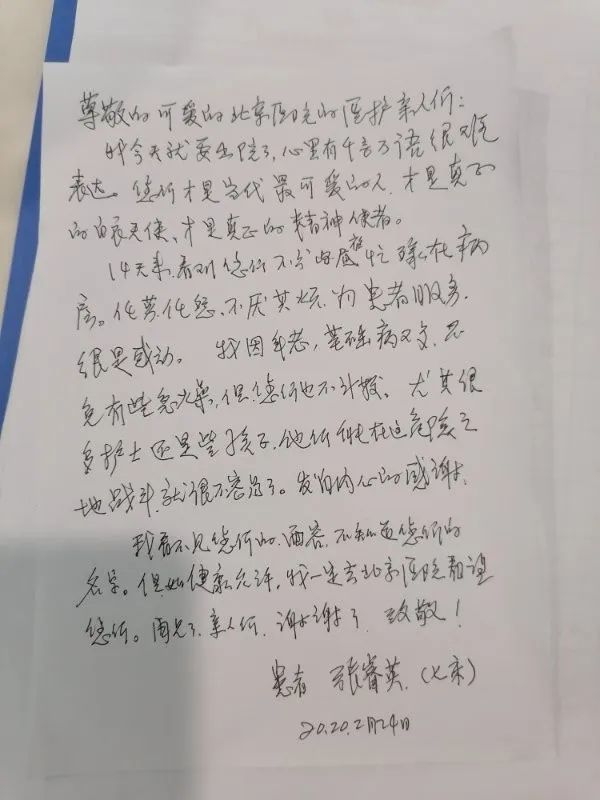 尊敬的可爱的北京医院的医护亲人们：
我今天就要出院了，心里有千言万语很难
表达。您们才是当代最可爱的人，才是真正
的白衣天使、才是真正的精神使者。
14天来，看到您们不分昼夜忙碌在病
房。任劳任怨，不厌其烦，为患者服务，
很是感动。 我因年老，基础病又多，不
免有些急躁，但您们也不计较。 尤其很
多护士还是些孩子，他们能在这危险之
地战斗，就很不容易了。发自内心的感谢，
我看不见您们的面容，不知道您们的
名字。但如健康允许，我一定去北京医院看望
您们。再见了，亲人们，谢谢了 致敬！
患者 张睿英（七床）
2020.2月24日